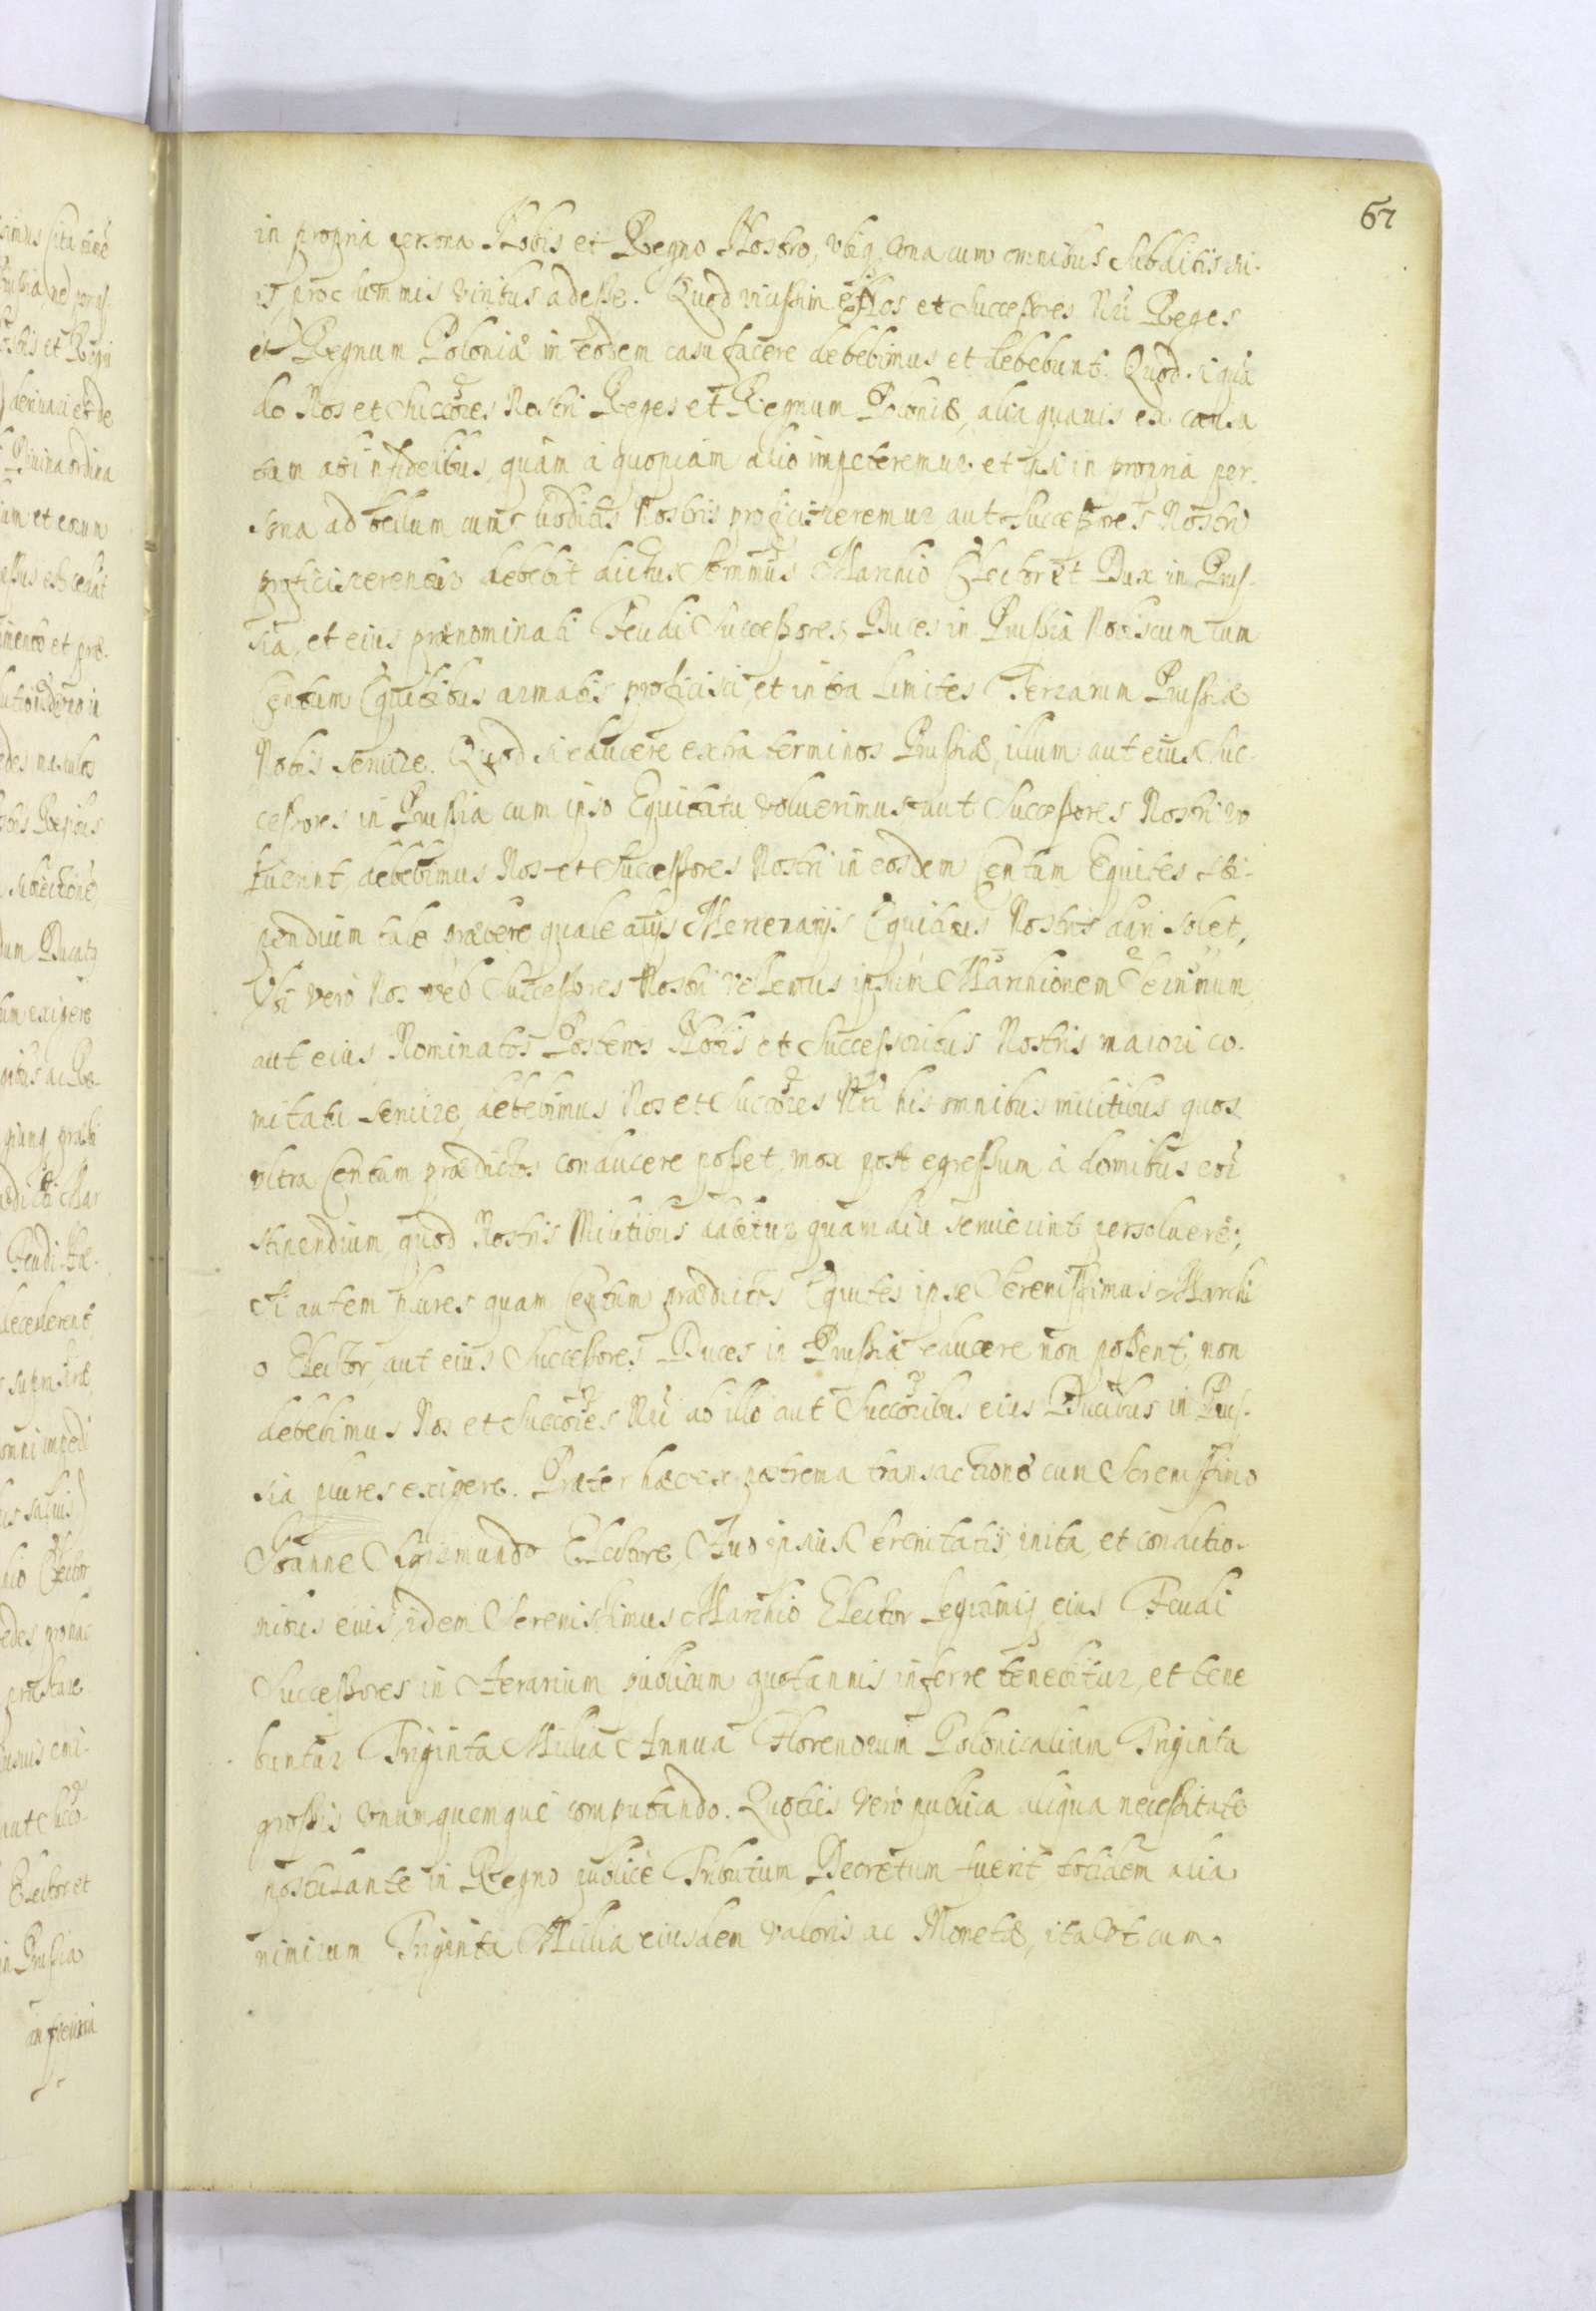 67
in propria persona Nobis et Regno Nostro, vbiq, vna cum omnibus Subditis su-
is, pro summis viribus adesse. Quod vicissim et Nos et Successores Nri Reges
et Regnum Poloniæ in eodem casu facere debebimus et debebunt. Quod si quã
do Nos et Succores Nostri Reges et Regnum Poloniæ, alia quauis ex causa
tam ab infidelibus, quàm à quopiam alio impeteremur et ipsi in propria per-
sona ad bellum cum subditis Nostris proficisceremur aut Successores Nostri
proficiscerentur debebit dictus Sermus Marchio Elector et Dux in Prus-
sia, et eius prænominati Feudi Successores, Duces in Prussia Nobiscum tum
Centum Equitibus armatis proficisci, et intra limites Terrarum Prussiæ
Nobis seruire. Quod si educere extra terminos Prussiæ, illum aut eius Suc-
cessores in Prussia cum ipso Equitatu voluerimus aut Successores Nostri vo
luerint, debebimus Nos et Successores Nostri in eosdem Centum Equites sti-
pendium tale præbere quale alijs Mercenarijs Equitibus Nostris dari solet,
Vbi verò Nos vel Successores Nostri vellemus ipsum Marchionem Sermum,
aut eius Nominatos Posteros Nobis et Successoribus Nostris maiori co-
mitatu seruire, debebimus Nos et Succores Nri his omnibus militibus quos
vltra Centum prædictos conducere posset, mox post egressum à domibus eoũ
stipendium, quod Nostris Militibus dabitur, quam diu seruierint persoluere;
Si autem plures quam Centum prædictos Equites ipse Serenissimus Marchi
o Elector, aut eius Successores Duces in Prussia educere non possent, non
debebimus Nos et Succores Nri ab illo aut Succoribus eius Ducibus in Prus-
sia plures exigere. Præter hæc ex postrema transactione cum Serenissimo
Joanne Sigismundo Electore, Auo ipsius Serenitatis inita, et conditio-
nibus eius, idem Serenissimus Marchio Elector legitimiq eius Feudi
Successores in Aerarium publicum quotannis inferre tenebitur, et tene
buntur Triginta Millia Annua Florenorum Polonicalium Triginta
grossis vnumquemque computando. Quoties verò publica aliqua necessitate
postulante in Regno publicè Tributum Decretum fuerit totidem alia
nimirum Triginta Millia eiusdem valoris ac Monetæ, ita vt cum